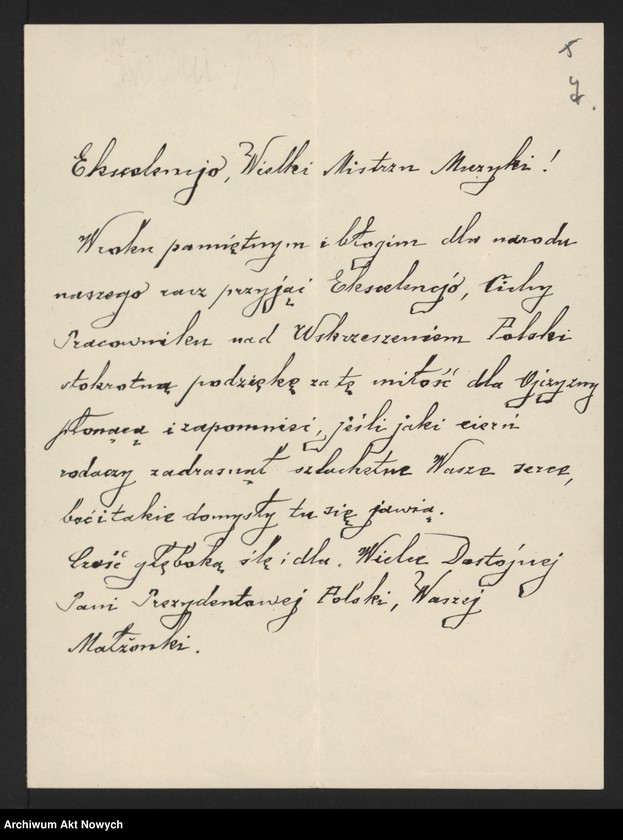 x
7.
Ekscelencjo, Wielki Mistrzu Muzyki!
W roku pamiętnym i błogim dla narodu
naszego racz przyjąć Ekscelencjo, Cichy
Pracowniku nad Wskrzeszeniem Polski
stokrotną podziękę za tę miłość dla Ojczyzny
płonącą i zapomnieć, jeśli jaki cierń
rodaczy zadrasnął szlachetne Wasze serce,
boć i takie domysły tu się jawią.
Cześć głęboką ślę i dla Wielce Dostojnej
Pani Prezydentowej Polski, Waszej
Małżonki.
Archiwum Akt Nowych